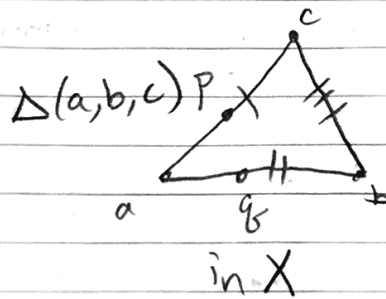 c
Δ(a,b,c) p
a q b
in X